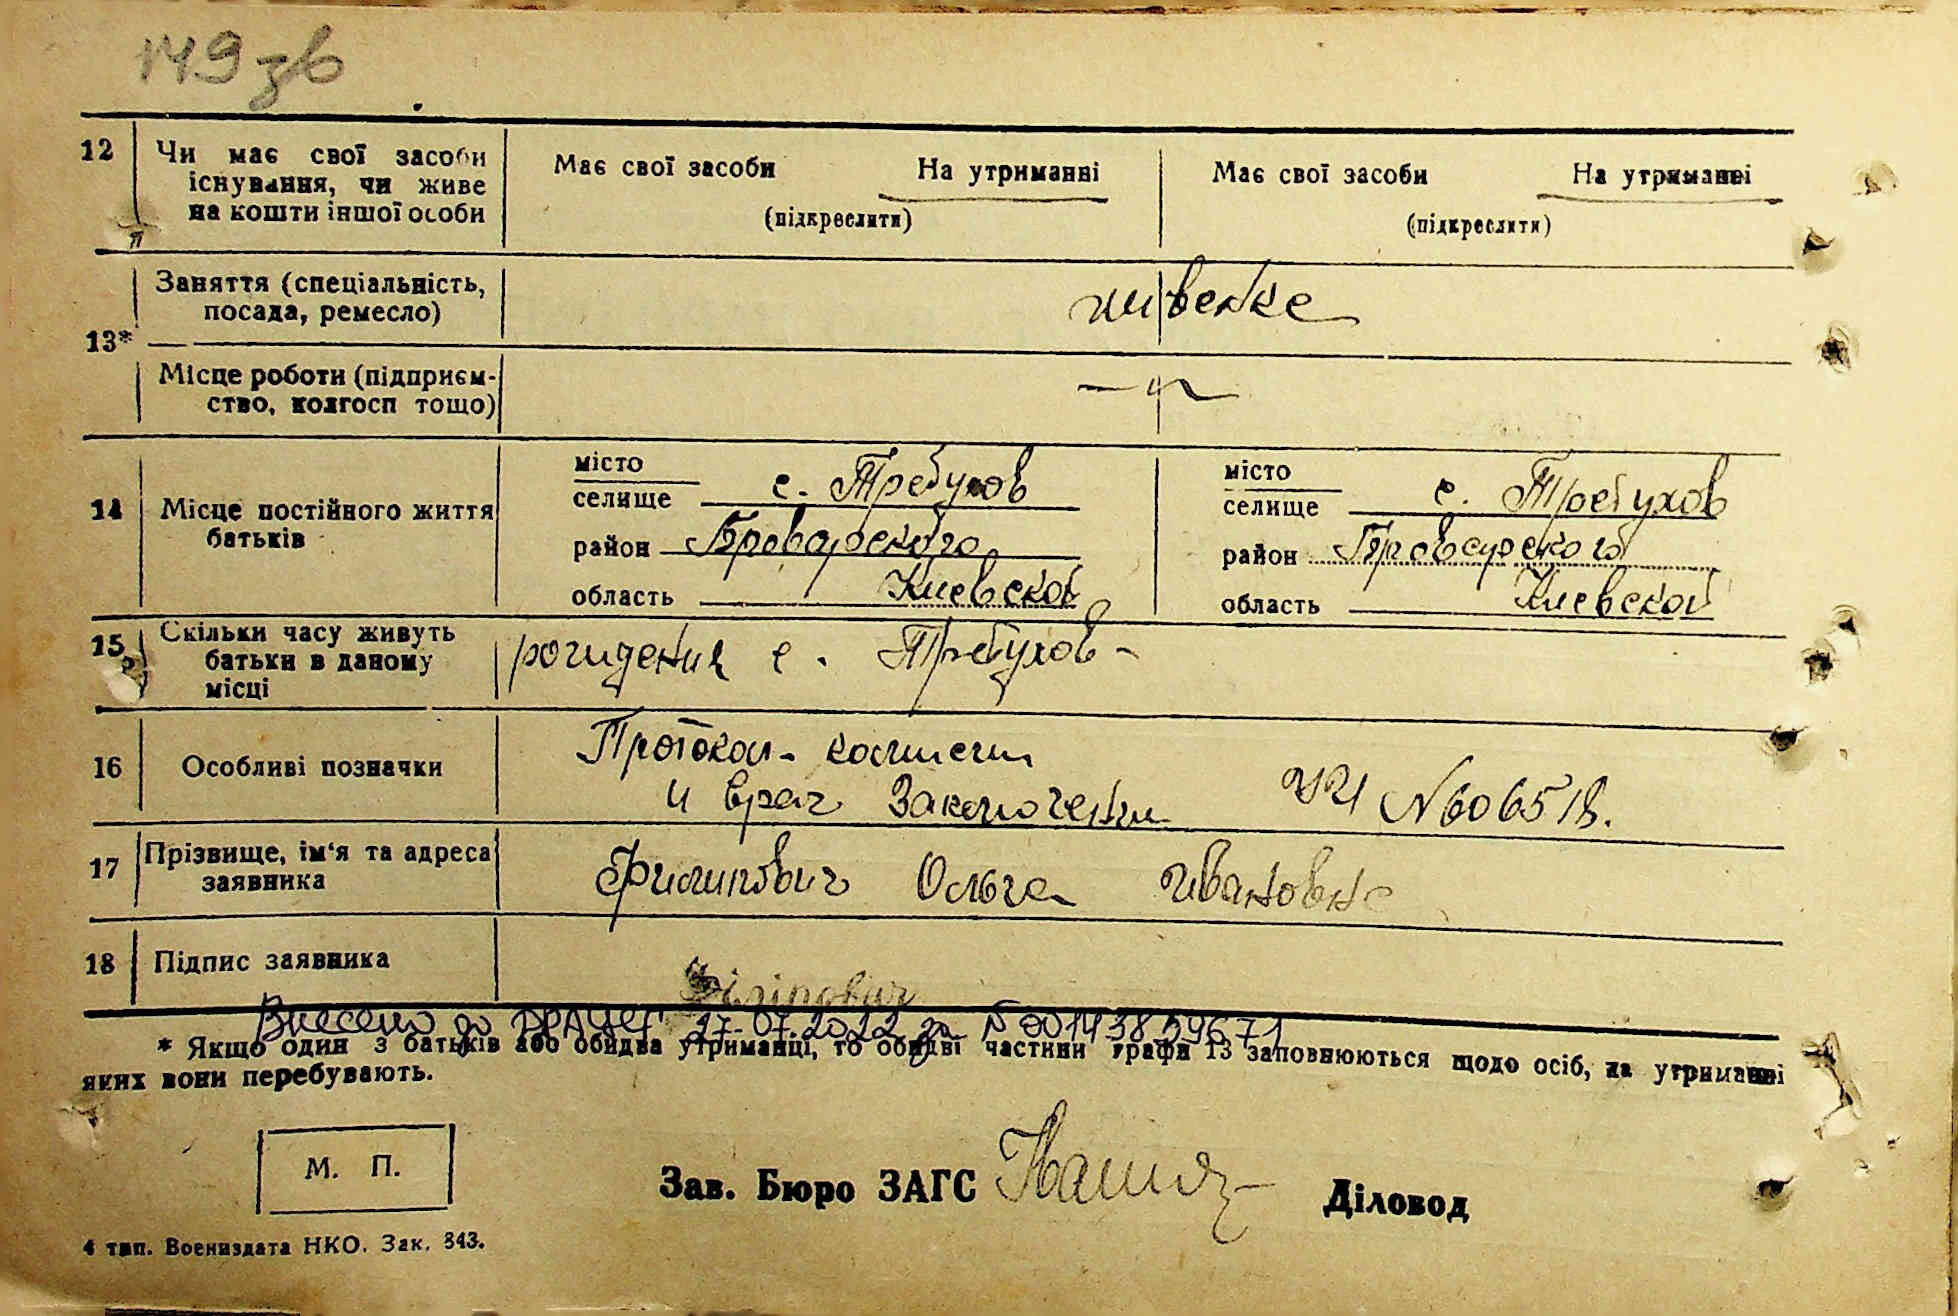 149 зв
12 Чи має свої засоби існування, чи живе на кошти іншої особи
Має свої засоби На утриманні
(підкреслити)
Має свої засоби На утриманні
(підкреслити)
13*
Заняття (спеціальність, посада, ремесло)
Місце роботи (підприємство, колгосп тощо)
14 Місце постійного життя батьків
місто
селище с. Требухов
район Броварского
область Киевской
місто
селище с. Требухов
район Броварского
область Киевской
15 Скільки часу живуть батьки в даному місці
рождения с. Требухов -
16 Особливі позначки
Протокол
и врач
№606518.
17 Прізвище, ім'я та адреса заявника
Филипович Ольга Ивановна
18 Підпис заявника
Філіпович
Внесено до ДРАЦСГ 27.07.2022 за № 00143859671
* Якщо один з батьків або обидва утриманці, то обидві частини графи 13 заповнюються щодо осіб, на утриманні
яких вони перебувають.
М. П.
Зав. Бюро ЗАГС
Діловод
4 тип. Воениздата НКО. Зак. 843.